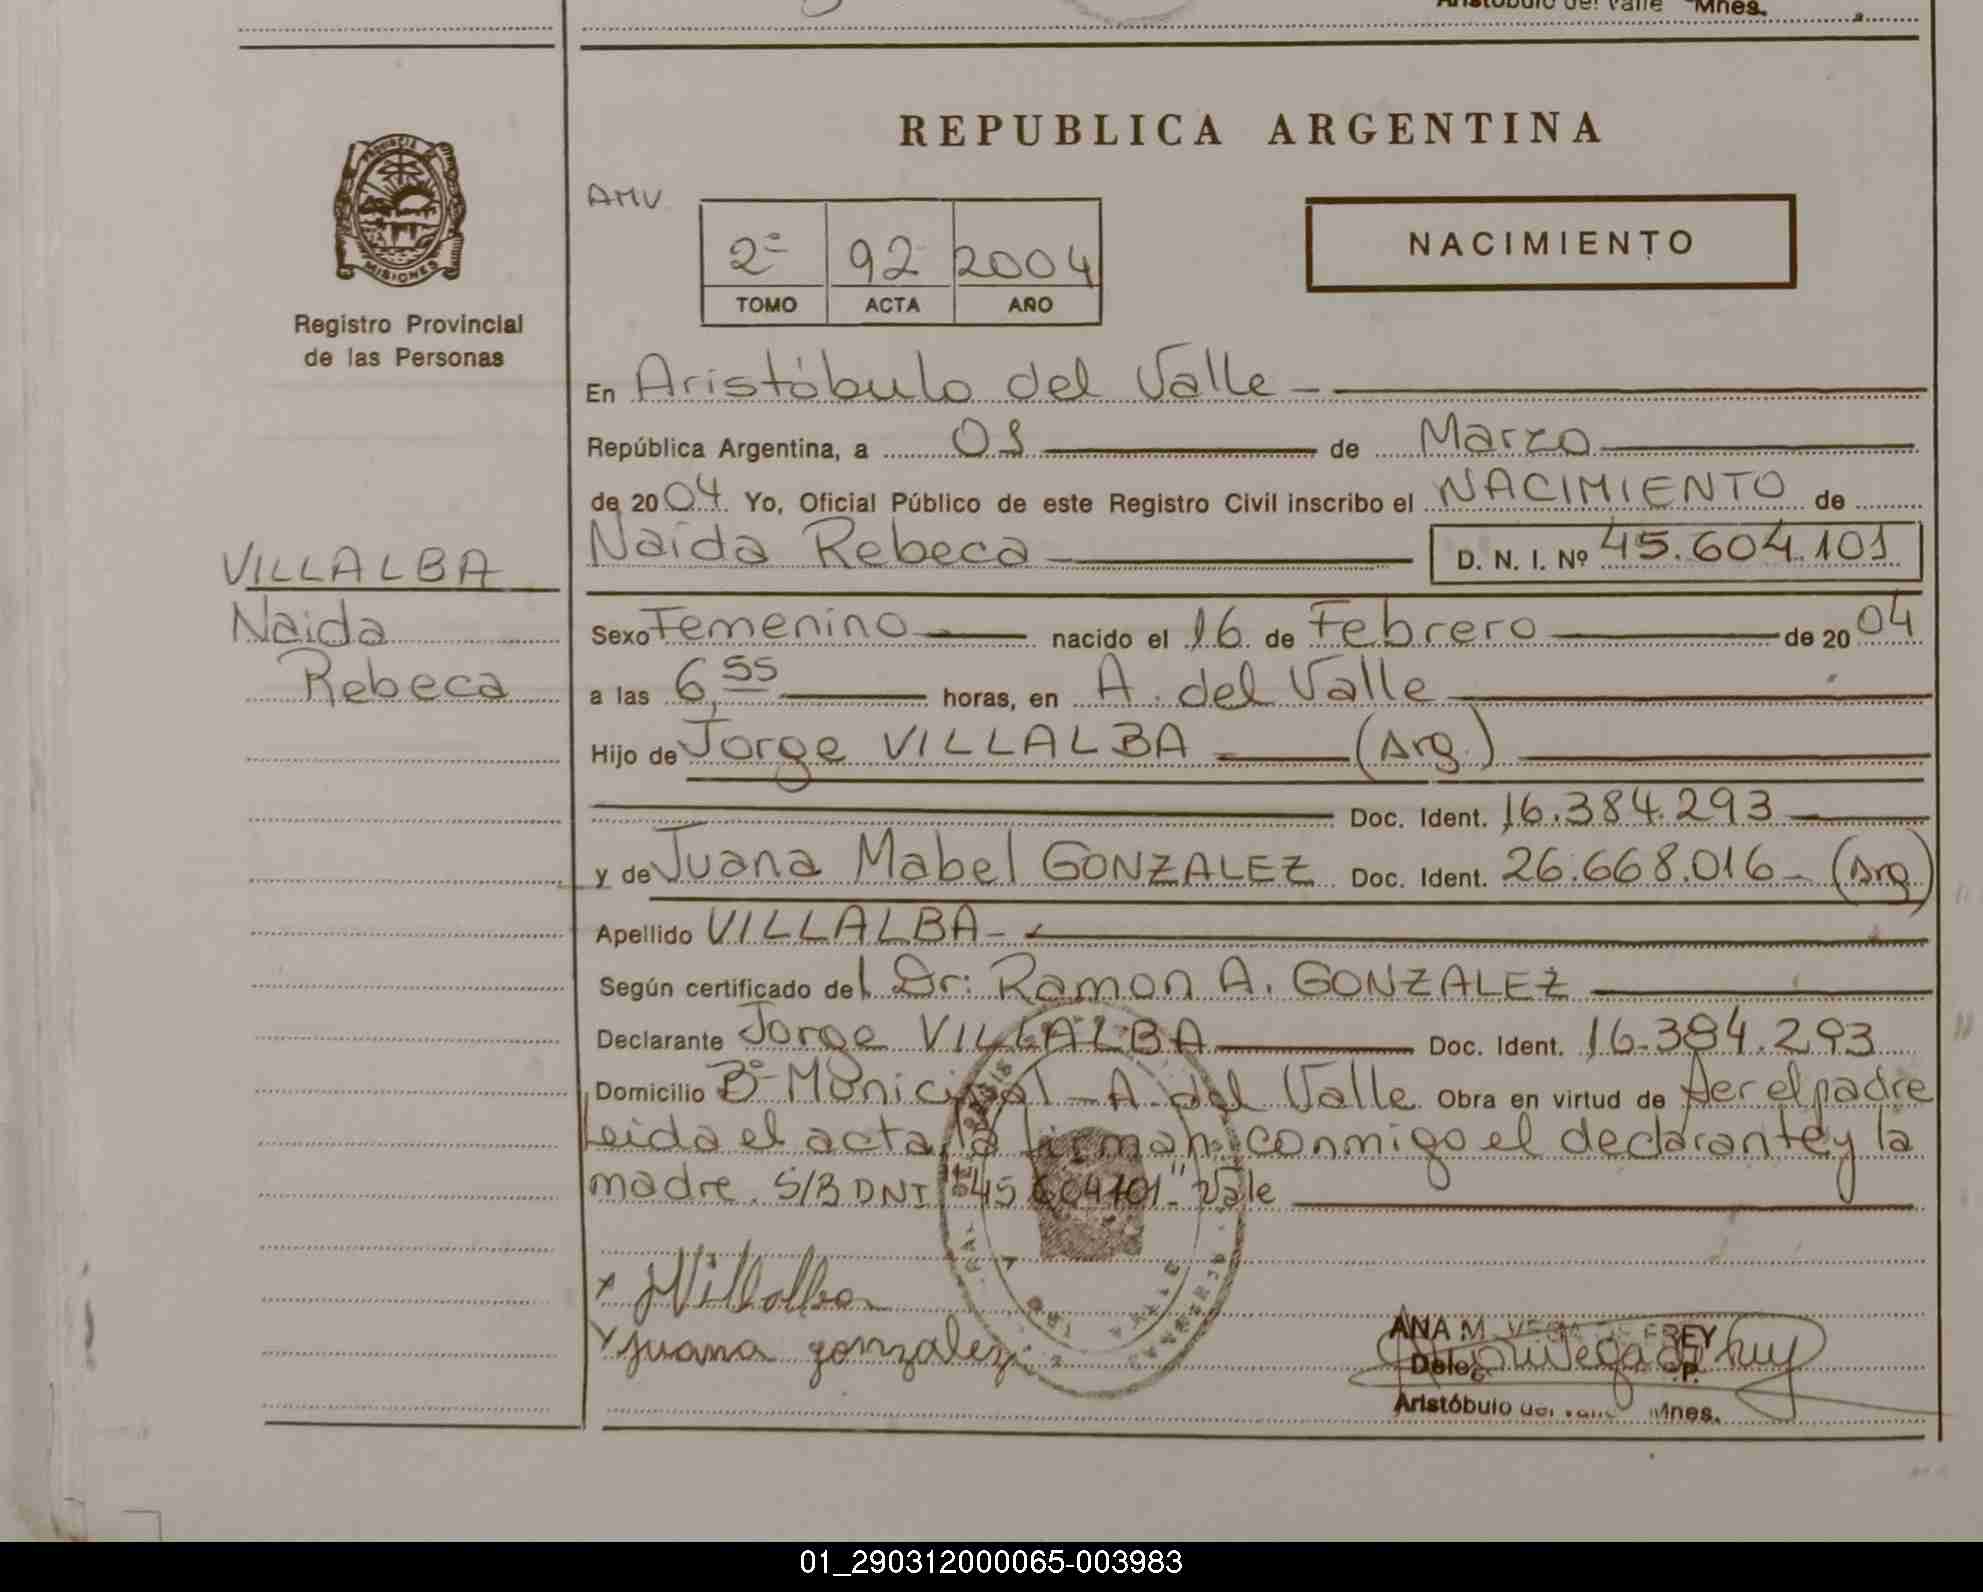 Aristóbulo del Valle Mnes.
REPUBLICA ARGENTINA
PROVINCIA
MISIONES
Registro Provincial
de las Personas
AMV
2º 92 2004
TOMO ACTA AÑO
NACIMIENTO
En Aristóbulo del Valle
República Argentina, a 03 de Marzo
de 2004 Yo, Oficial Público de este Registro Civil inscribo el NACIMIENTO de
Naida Rebeca D. N. I. Nº 45.604.101
VILLALBA
Naida
Rebeca
Sexo Femenino nacido el 16 de Febrero de 2004
a las 6,55 horas, en A. del Valle
Hijo de Jorge VILLALBA (Arg.)
Doc. Ident. 16.384.293
y de Juana Mabel GONZALEZ Doc. Ident. 26.668.016 - (Arg)
Apellido VILLALBA -
Según certificado del Dr: Ramon A. GONZALEZ
Declarante Jorge VILLALBA Doc. Ident. 16.384.293
Domicilio Bº Municipal - A. del Valle Obra en virtud de ser el padre
Leida el acta, la firman conmigo el declarante y la
madre. S/B DNI "45.604.101" Vale
x JVillalba
x juana gonzalez
ANA M. VEGA DE FREY
Aristóbulo del Valle Mnes.
01_290312000065-003983